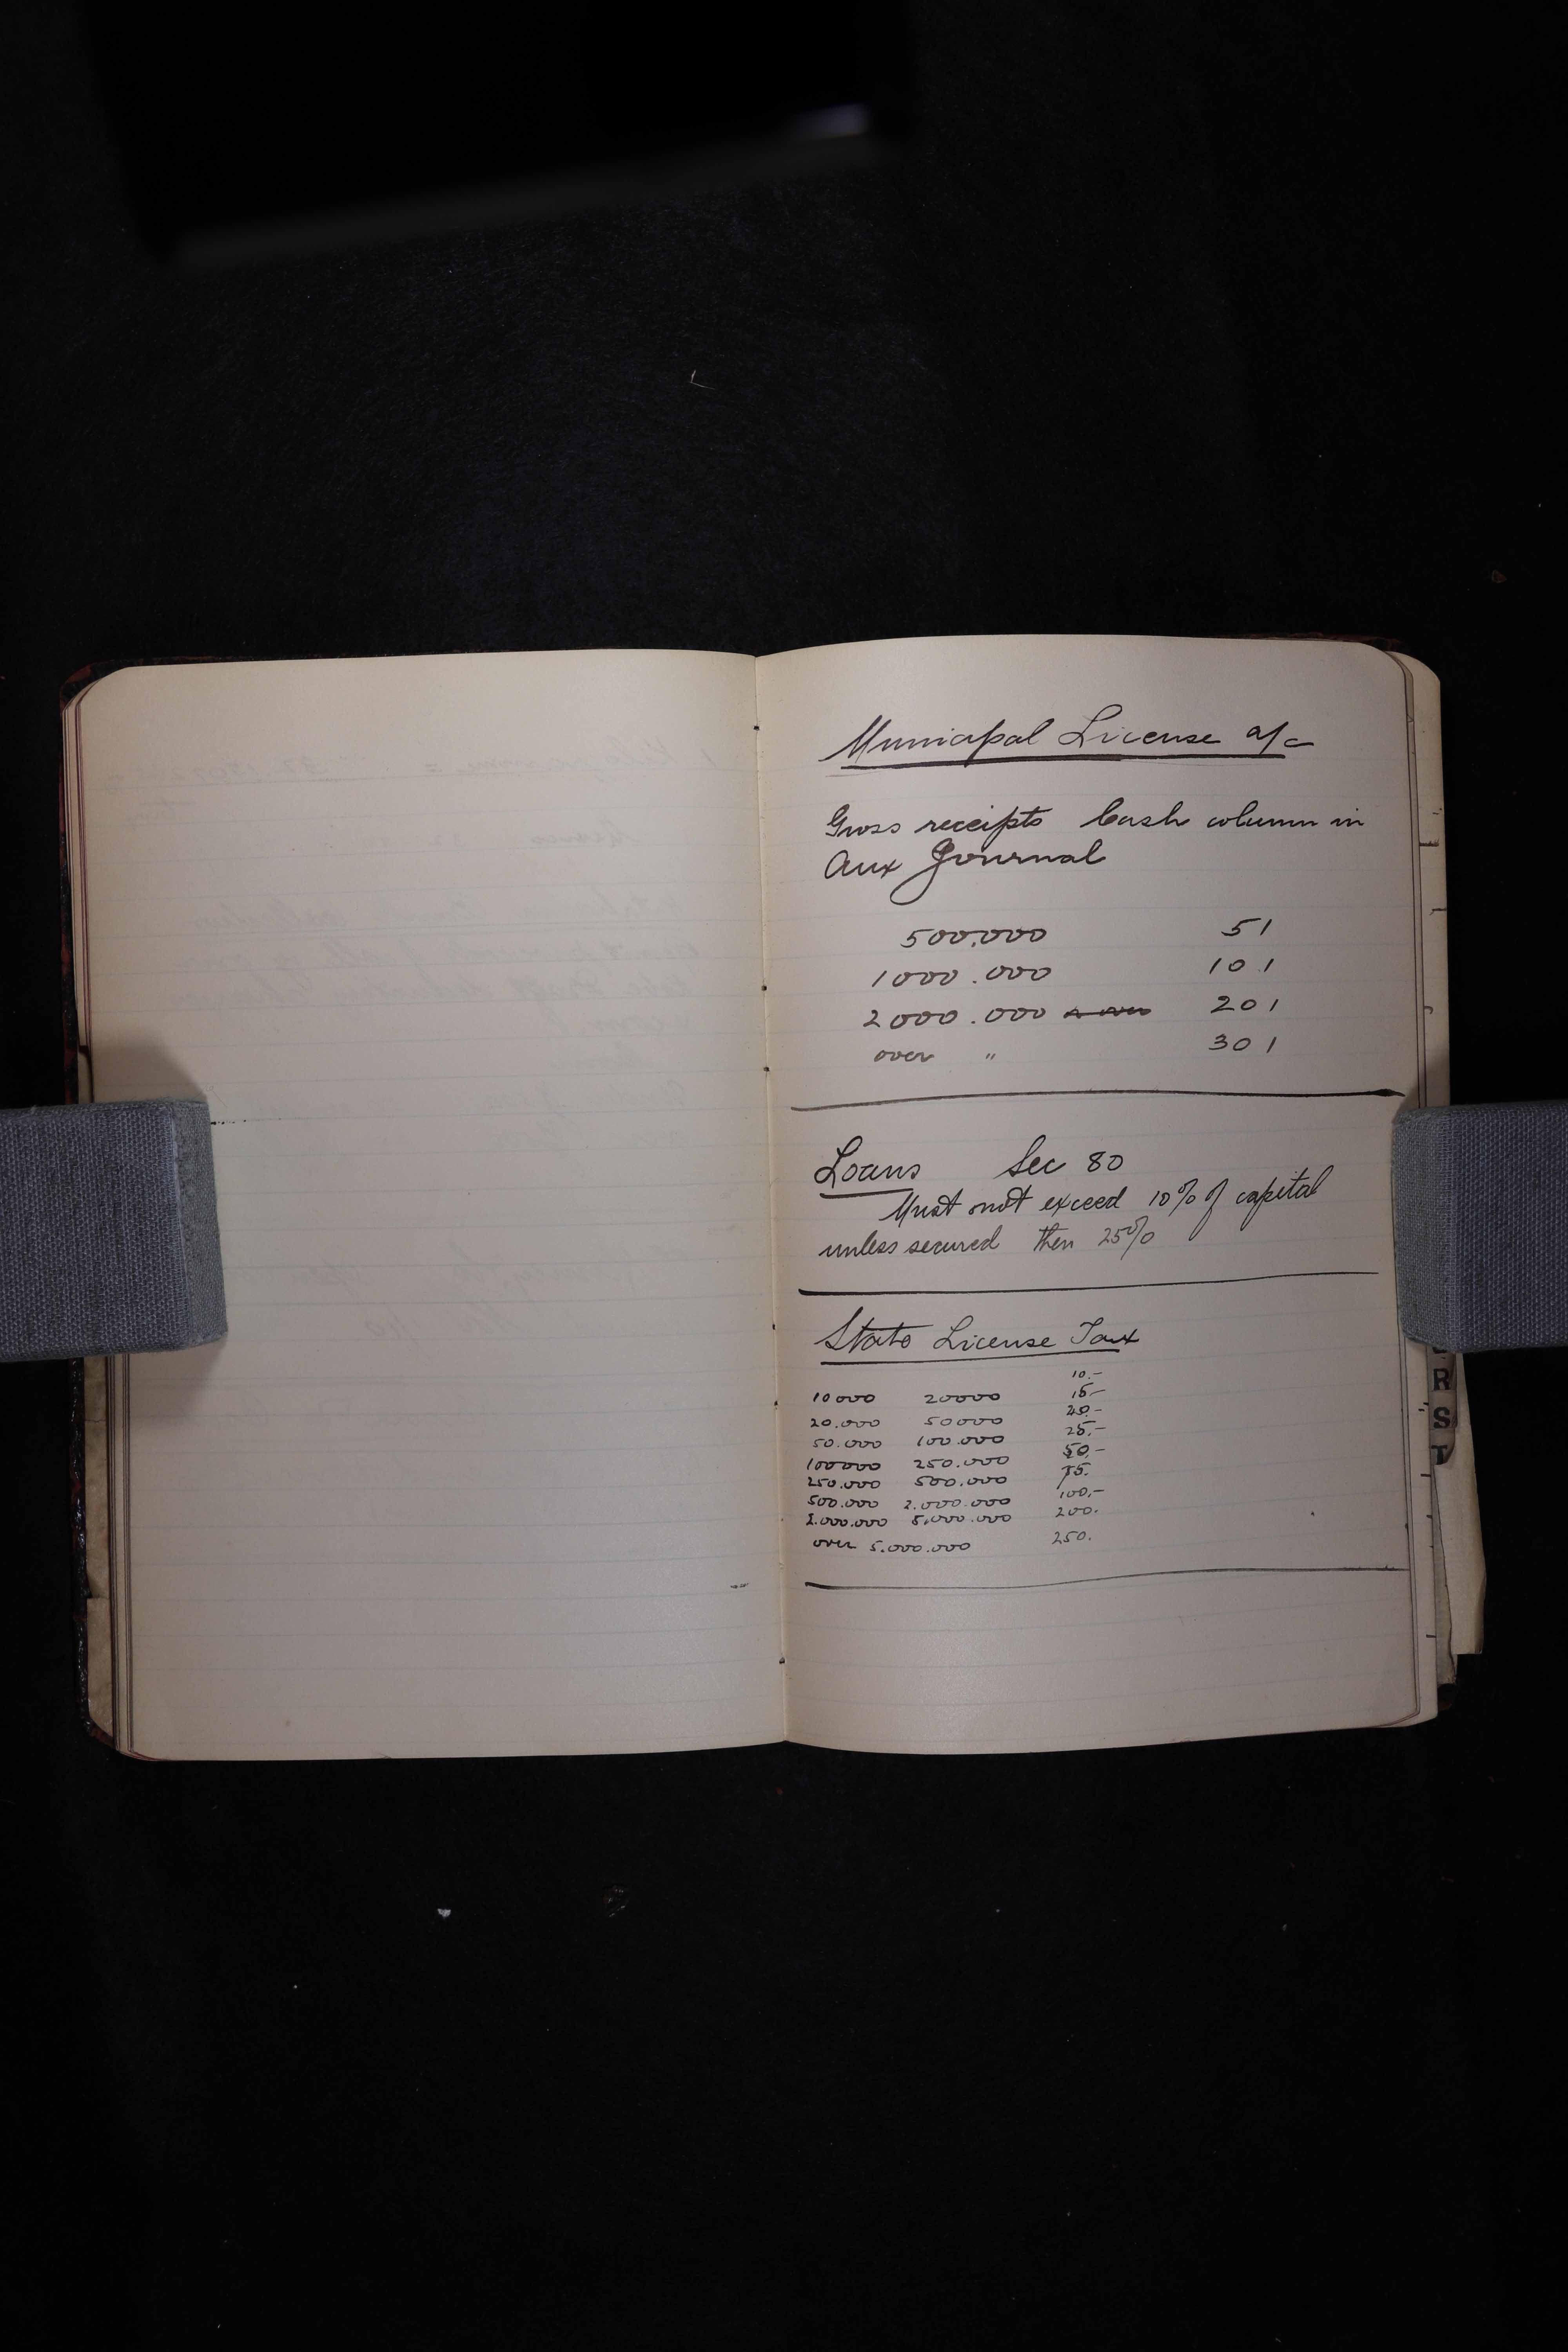 Municipal License a/c
Gross receipts Cash column in
Aux Journal
500.000 51
1000.000 101
2000.000 201
over " 301
Loans Sec 80
Must not exceed 10% of capital
unless secured then 25%
State License Tax
10.-
10000 20000 15.-
20.000 50000 20.-
50.000 100.000 25.-
100000 250.000 50.-
250.000 500.000 75.
500.000 2.000.000 100.-
2.000.000 5.000.000 200.
over 5.000.000 250.
R
S
T